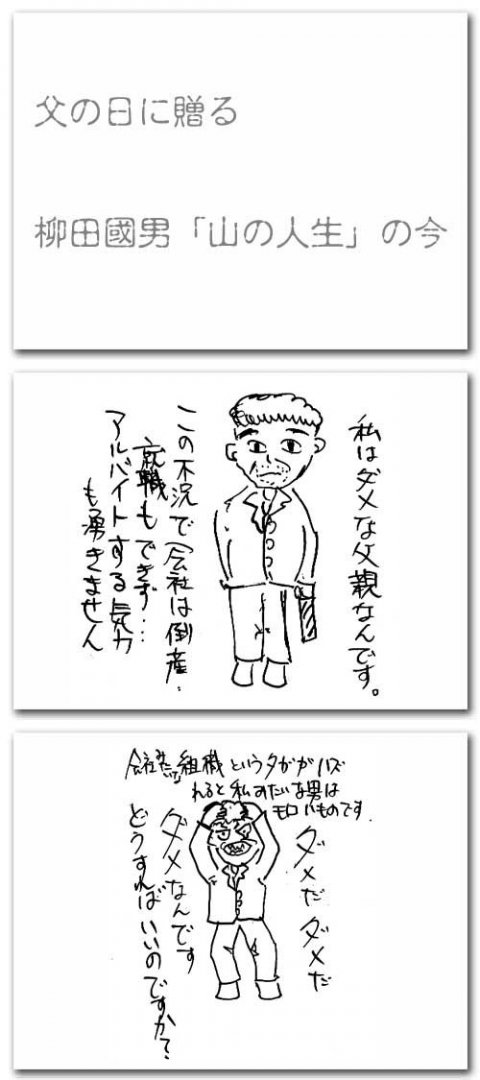 父の日に贈る
柳田國男「山の人生」の今
私はダメな父親なんです。
この不況で会社は倒産.
就職もできず…
アルバイトする気力
も湧きません
会社みたいな組織というタガがハズ
れると私みたいな男は
モロいものです.
ダメだ ダメだ
ダメなんです
どうすればいいのですか?